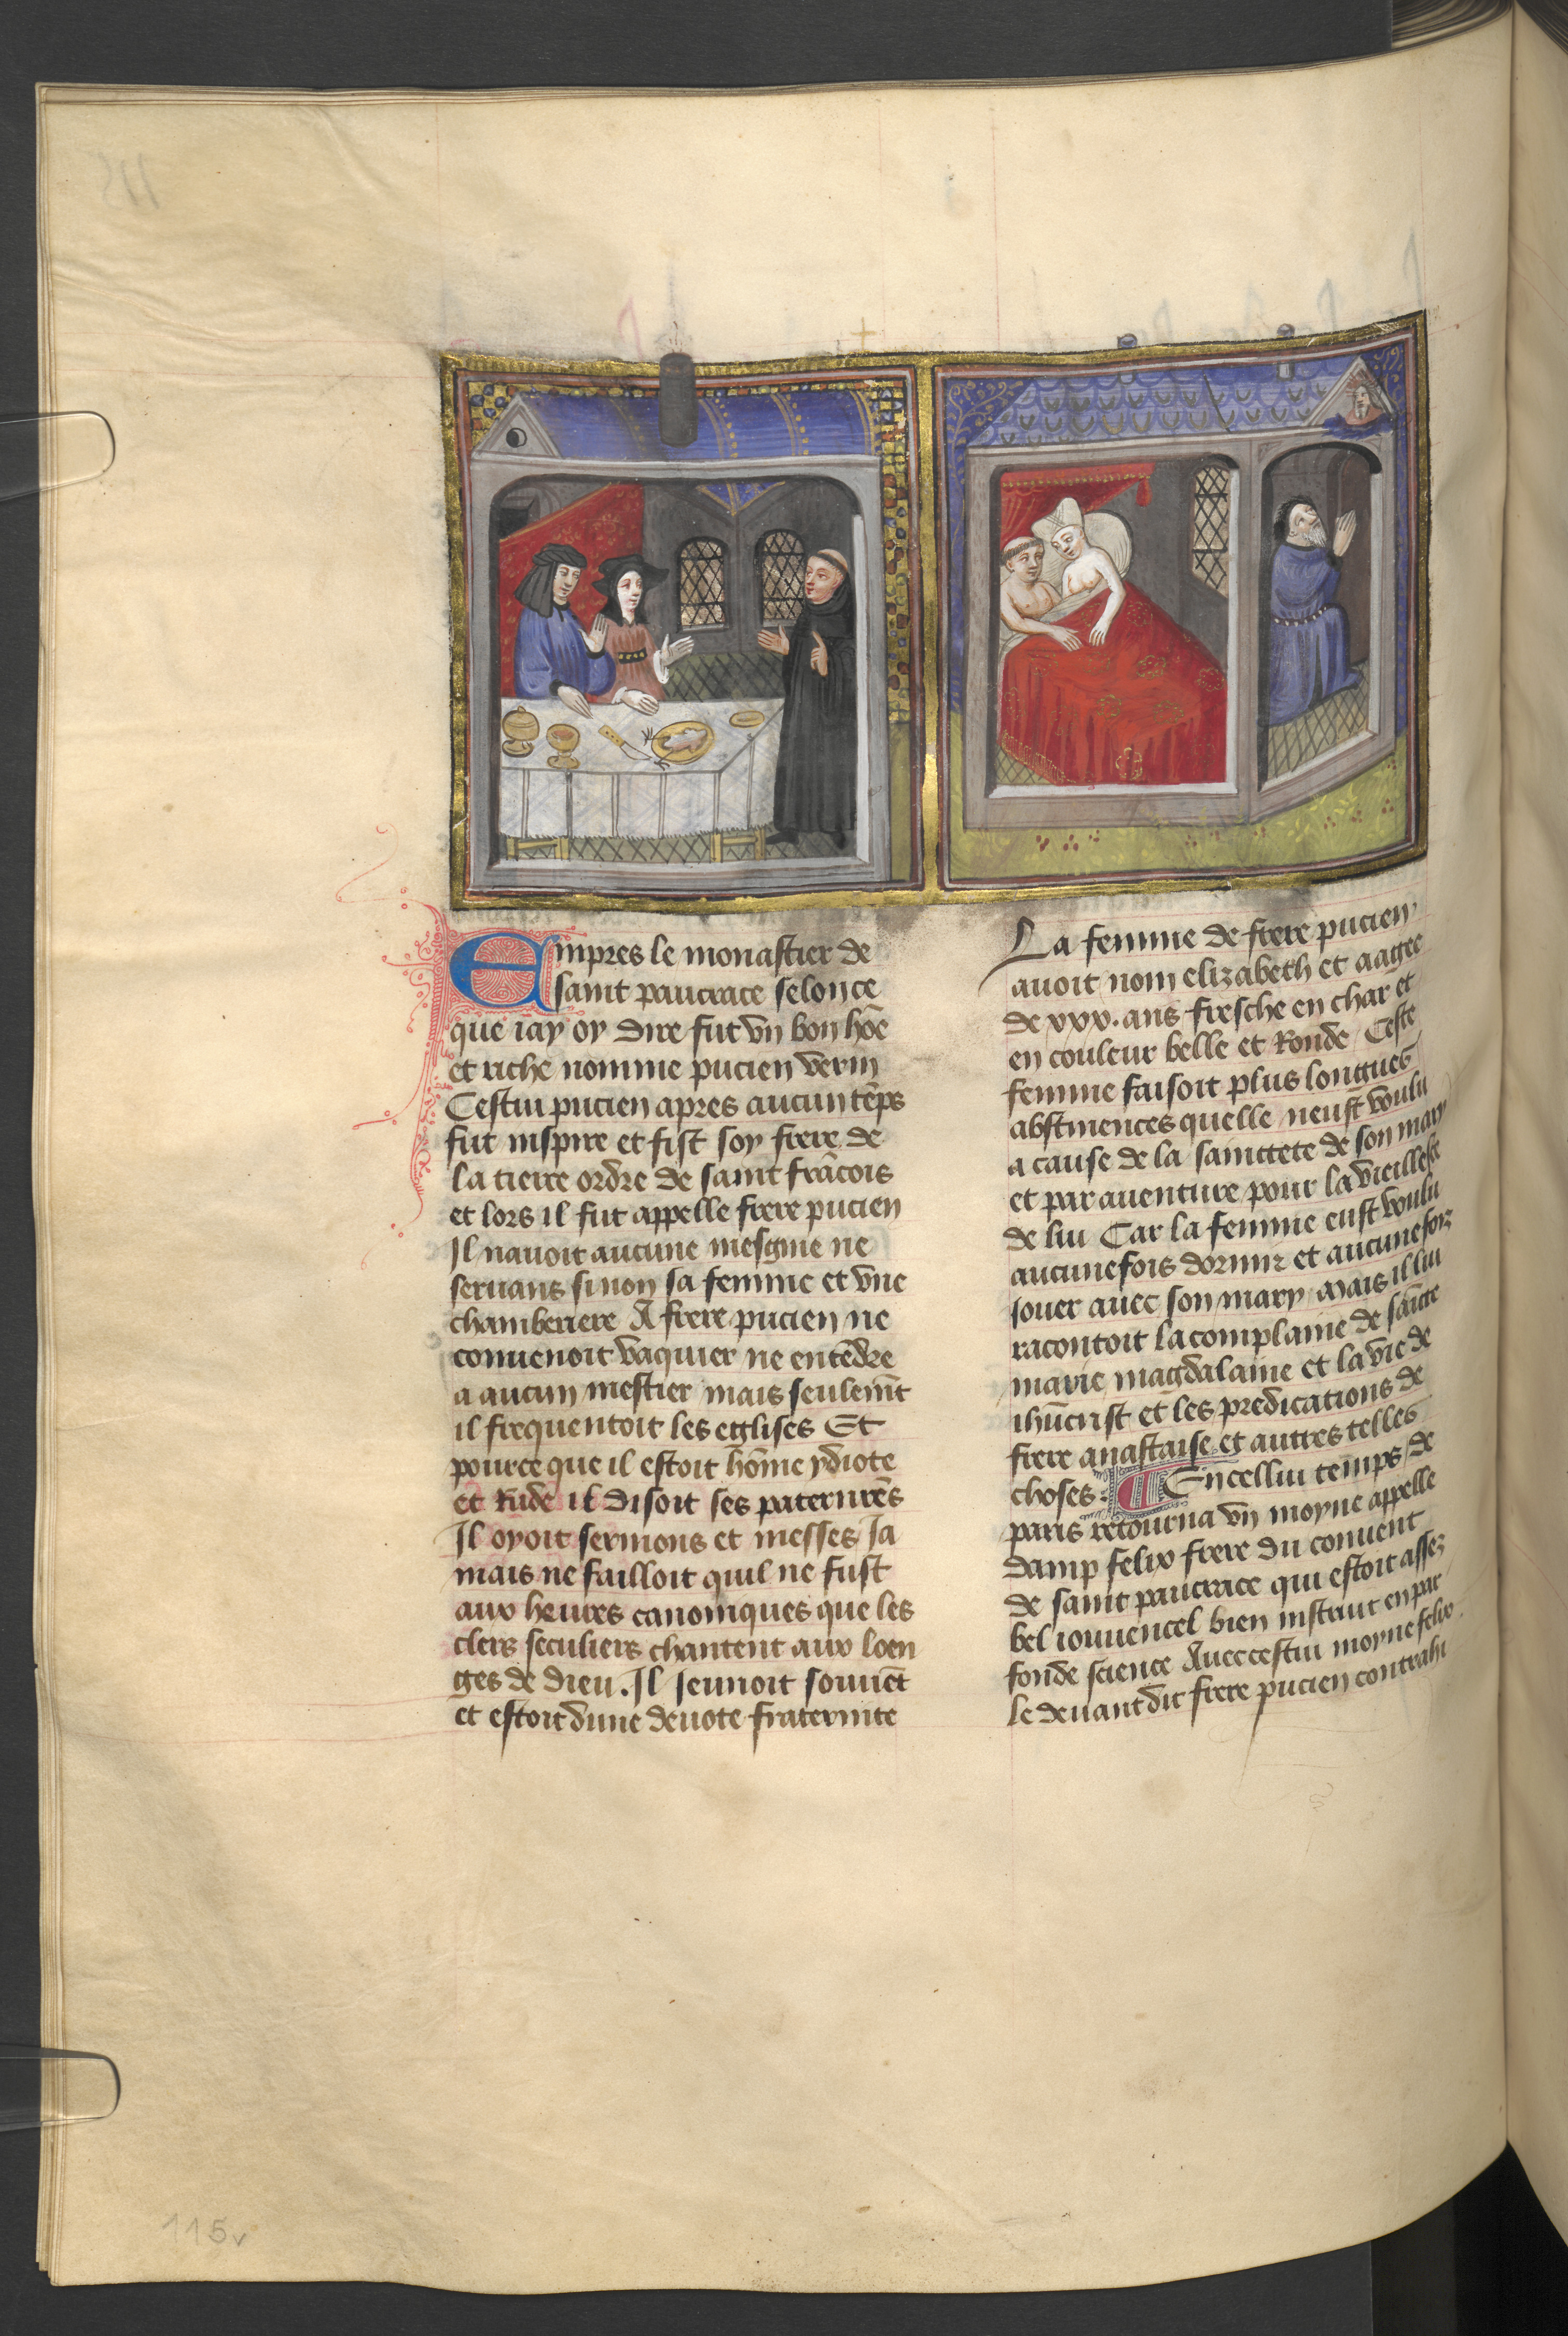 Empres le monastier de
saint pancrace selon ce
que iay oy dire fut vn bon hōe
et riche nomme pucien verin
Cestui pucien apres aucun tēps
fut inspire et fist soy frere de
la tierce ordre de saint frācois
et lors il fut appelle frere pucien
Il nauoit aucune mesgnie ne
seruans sinon sa femme et vne
chamberiere A frere pucien ne
conuenoit vaquier ne entēdre
a aucun mestier mais seulemt̄
il frequentoit les eglises Et
pource que il estoit hōme ydiote
et Rude il disoit ses paternrēs
Il oyoit sermons et messes Ja
mais ne failloit quil ne fust
aux heures canoniques que les
clers seculiers chantent aux loen
ges de dieu. Il Jeunoit souuēt
et estoit dune deuote fraternite
La femme de frere pucien
auoit nom elizabeth et aagee
de xxx. ans fresche en char et
en couleur belle et Ronde Ceste
femme faisoit plus longues
abstinences quelle neust voulu
a cause de la sainctete de son mary
et par auenture pour la vieillesse
de lui Car la femme eust voulu
aucunefois dormir et aucunefoiz
Jouer auec son mary Mais il lui
racontoit la complainte de sācte
marie magdalaine et la vie de
ihūcrist et les predications de
frere anastaise et autres telles
choses. En cellui temps de
paris retourna vn moyne appelle
damp felix frere du conuent
de saint pancrace qui estoit assez
bel iouuencel bien instruit en par
fonde science Auec cestui moyne felix
le deuant dit frere pucien contrahi
115
115v